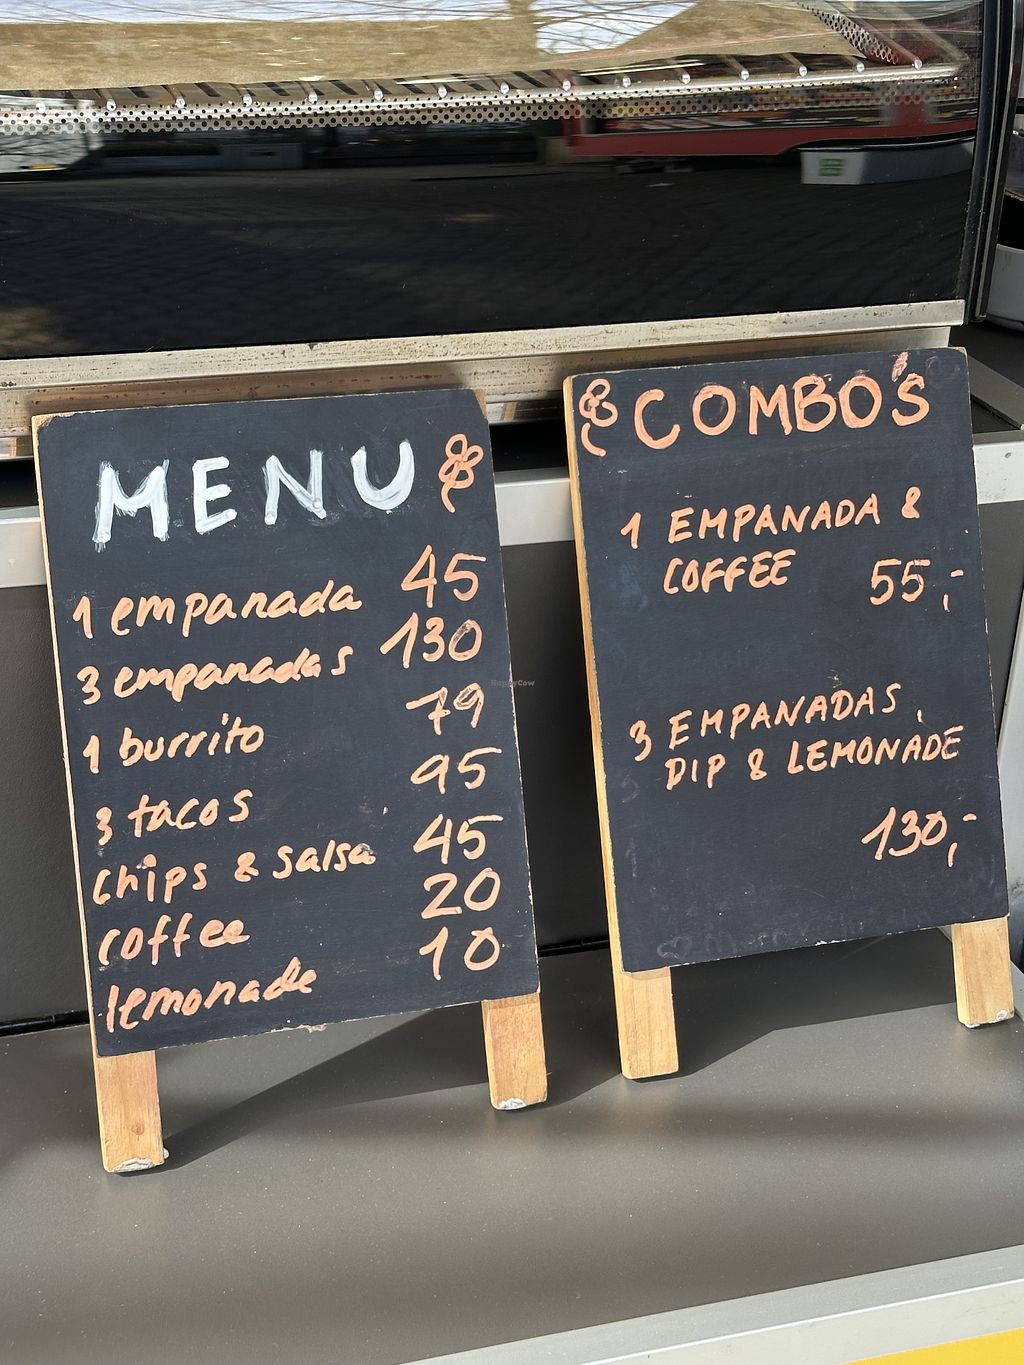 MENU
1 empanada 45
3 empanadas 130
1 burrito 79
3 tacos 95
chips & salsa 45
coffee 20
lemonade 10
COMBO'S
1 EMPANADA &
COFFEE 55,-
3 EMPANADAS,
DIP & LEMONADE
130,-
HappyCow